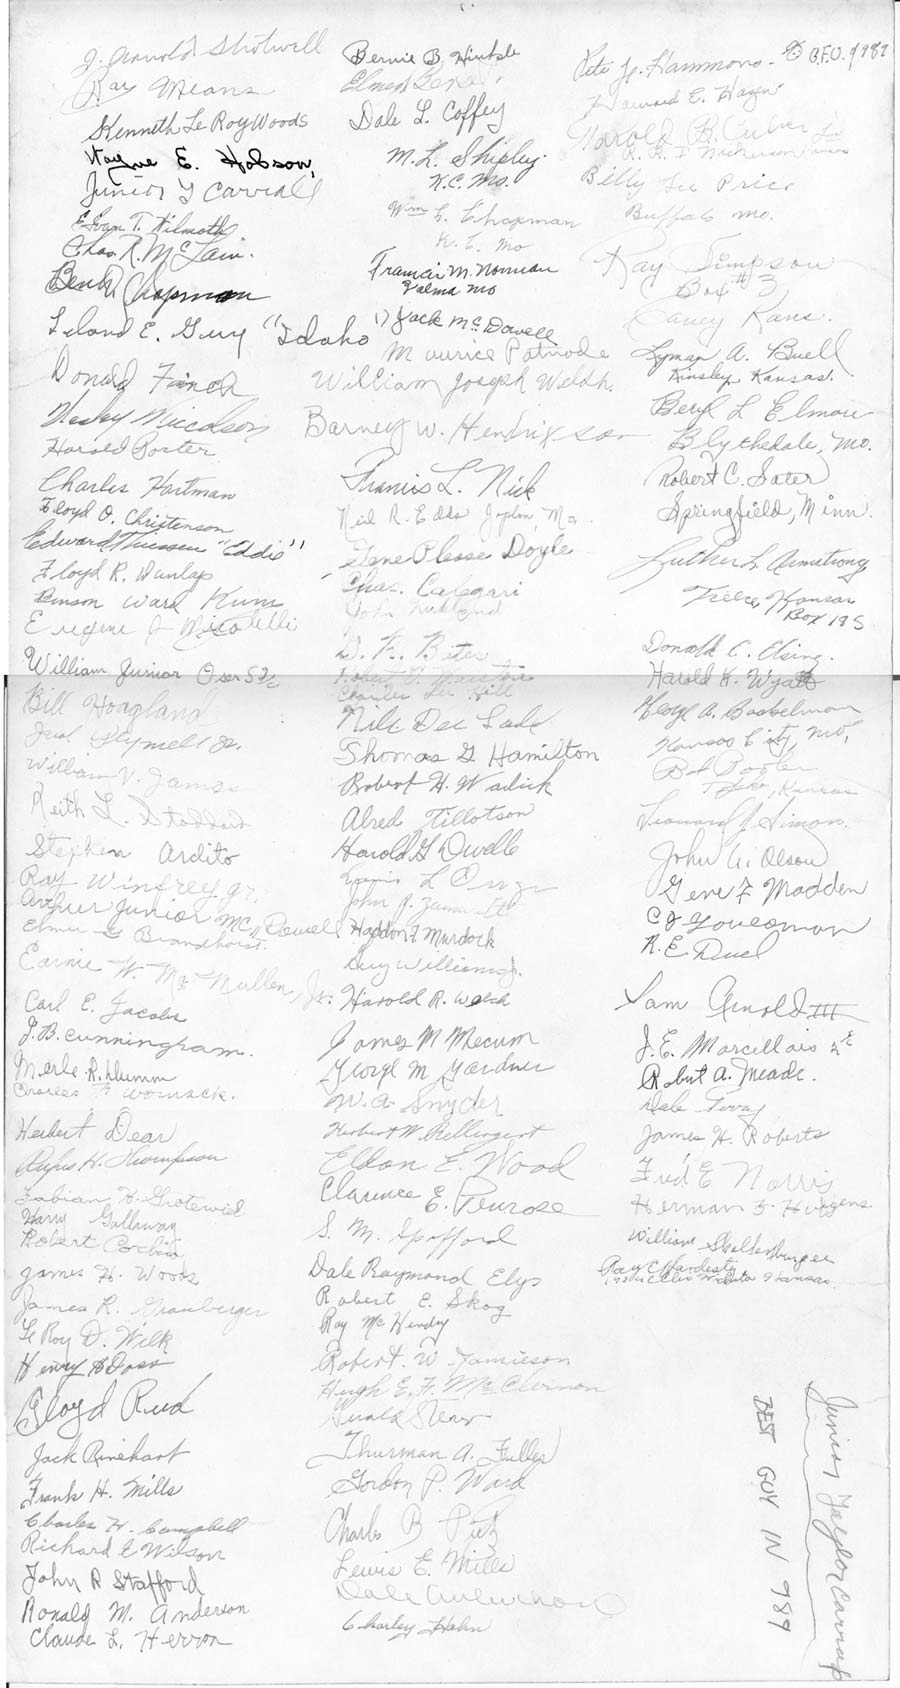 J. Arnold Shotwell
Ray Means
Kenneth Le Roy Woods
Wayne E. Hobson,
Junior T Carrall
Evan T. Wilmoth
Chas. R. McLain.
Ben R. Chapman
Leland E. Guy "Idaho"
Donald Finch
Wesley Niccolson
Harold Porter
Charles Hartman
Floyd O. Christenson
Edward Thiessen "Eddie"
Floyd R. Dunlap
Benson Ward
Eugene J
William Junior
Bill Hoagland
Stymell Jr.
William V. James
Keith L. Stoddard
Stephen Ardito
Ray Winfrey Jr.
Arthur Junior McDowell
Elmer G Brandhorst.
Earnie W. McMullen, Jr.
Carl E. Jacobs
J. B. Cunningham.
Merle R. Humm
Charles F Womack.
Herbert Dear
Rufus H. Thompson
Fabian H. Grotewiel
Harry Gallaway
Robert Corbin
James H. Woods
James R. Granberger
Le Roy D. Wilk
Henry H Doss
Floyd Rud
Jack Rinehart
Frank H. Mills
Charles W. Campbell
Richard E Wilson
John R Stafford
Ronald M. Anderson
Claude L. Herron
Bernie B. Hinkle
Elmer
Dale L. Coffey
M. L. Shipley.
K.C. Mo.
Wm L. Chapman
K. C. Mo
Francis M. Norman
Mo
Jack McDowell
Maurice Patnode
William Joseph Welsh.
Barney W. Hendrixson
Francis L. Nick
Neil R. Edds Joplin, Mo.
Gene Plesse Doyle
Chas. Calegari
John Kirkland
D. R. Bates
Robert
Charles Lee Hill
Nile Dee
Thomas G. Hamilton
Robert H. Warlick
Alred Tillotson
Harold G Dwelle
L
John J. Zumwalt
Haddon F Murdock
Guy Williams Jr.
Harold R. Welch
James M Mecum
George M Gardner
W. A. Snyder
Herbert W. Bellingert
Eldon E. Wood
Clarence E. Penrose
S. M. Spofford
Dale Raymond Elys
Robert E. Skog
Ray McHendry
Robert W Jamieson
Hugh E. F. McClernon
Gerald Stenr
Thurman A. Fuller
Gordon P. Ward
Charles B Pietz
Lewis E. Mills
Dale
Charley Hahn
Pete G. Hammons - C.F.O. 9/989
Howard E. Hazen
Harold B. Culver Jr
R. R. 1 Nickerson Kans
Billy Lee Price
Buffalo Mo.
Ray Simpson
Box #3
Caney Kans.
Lyman A. Buell
Kinsley Kansas.
Beryl L Elmore
Blythedale, Mo.
Robert C. Sater
Springfield, Minn.
Luther L Armstrong,
Treece, Kansas
Box 185
Donald C. Olsing.
Harold K. Wyatt
George A. Bockelman
Kansas City, Mo,
Bob
Kansas
Leonard J Simon.
John A. Olson
Gene F Madden
C J Youcoman
R. E. Duel
Sam Arnold III
J. E. Marcellais
Robert A. Meade.
Dale Terry
James H. Roberts
Fred E Norris
Herman F. Huggens
William Shallenburger
Ray C Hardesty
Kansas
Junior Taylor Carrap
BEST GUY IN 989